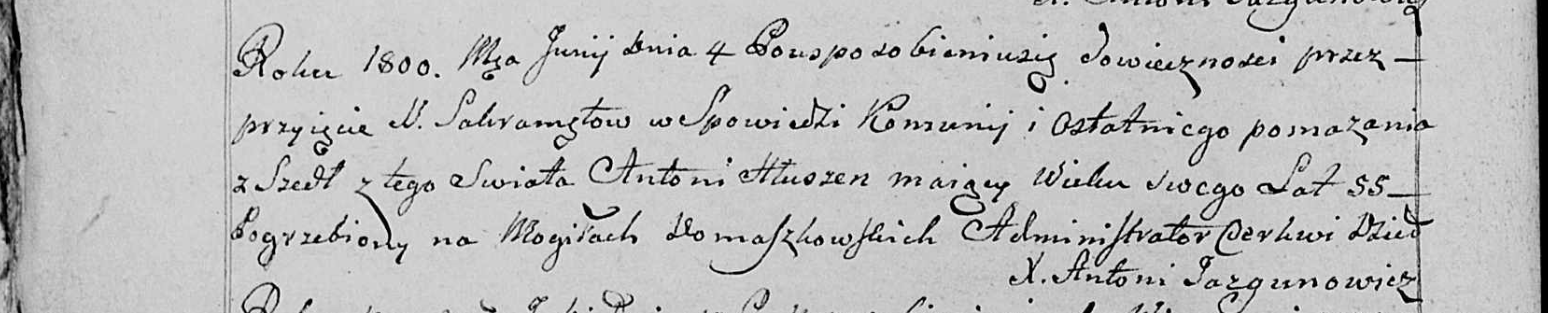 X. Antoni Jazgunowicz
Roku 1800. Mca Junij Dnia 4 Pousposobieniusię dowieczności przez
przyięcie N. Sakramętow w Spowiedzi Komunij i Ostatniego pomazania
z Szedł z tego Swiata Antoni Hłuszen maiący Wieku swego Lat 55
Pogrzebiony na Mogiłach Domaszkowskich Administrator Cerkwi Dzied
X. Antoni Jazgunowicz
Roku